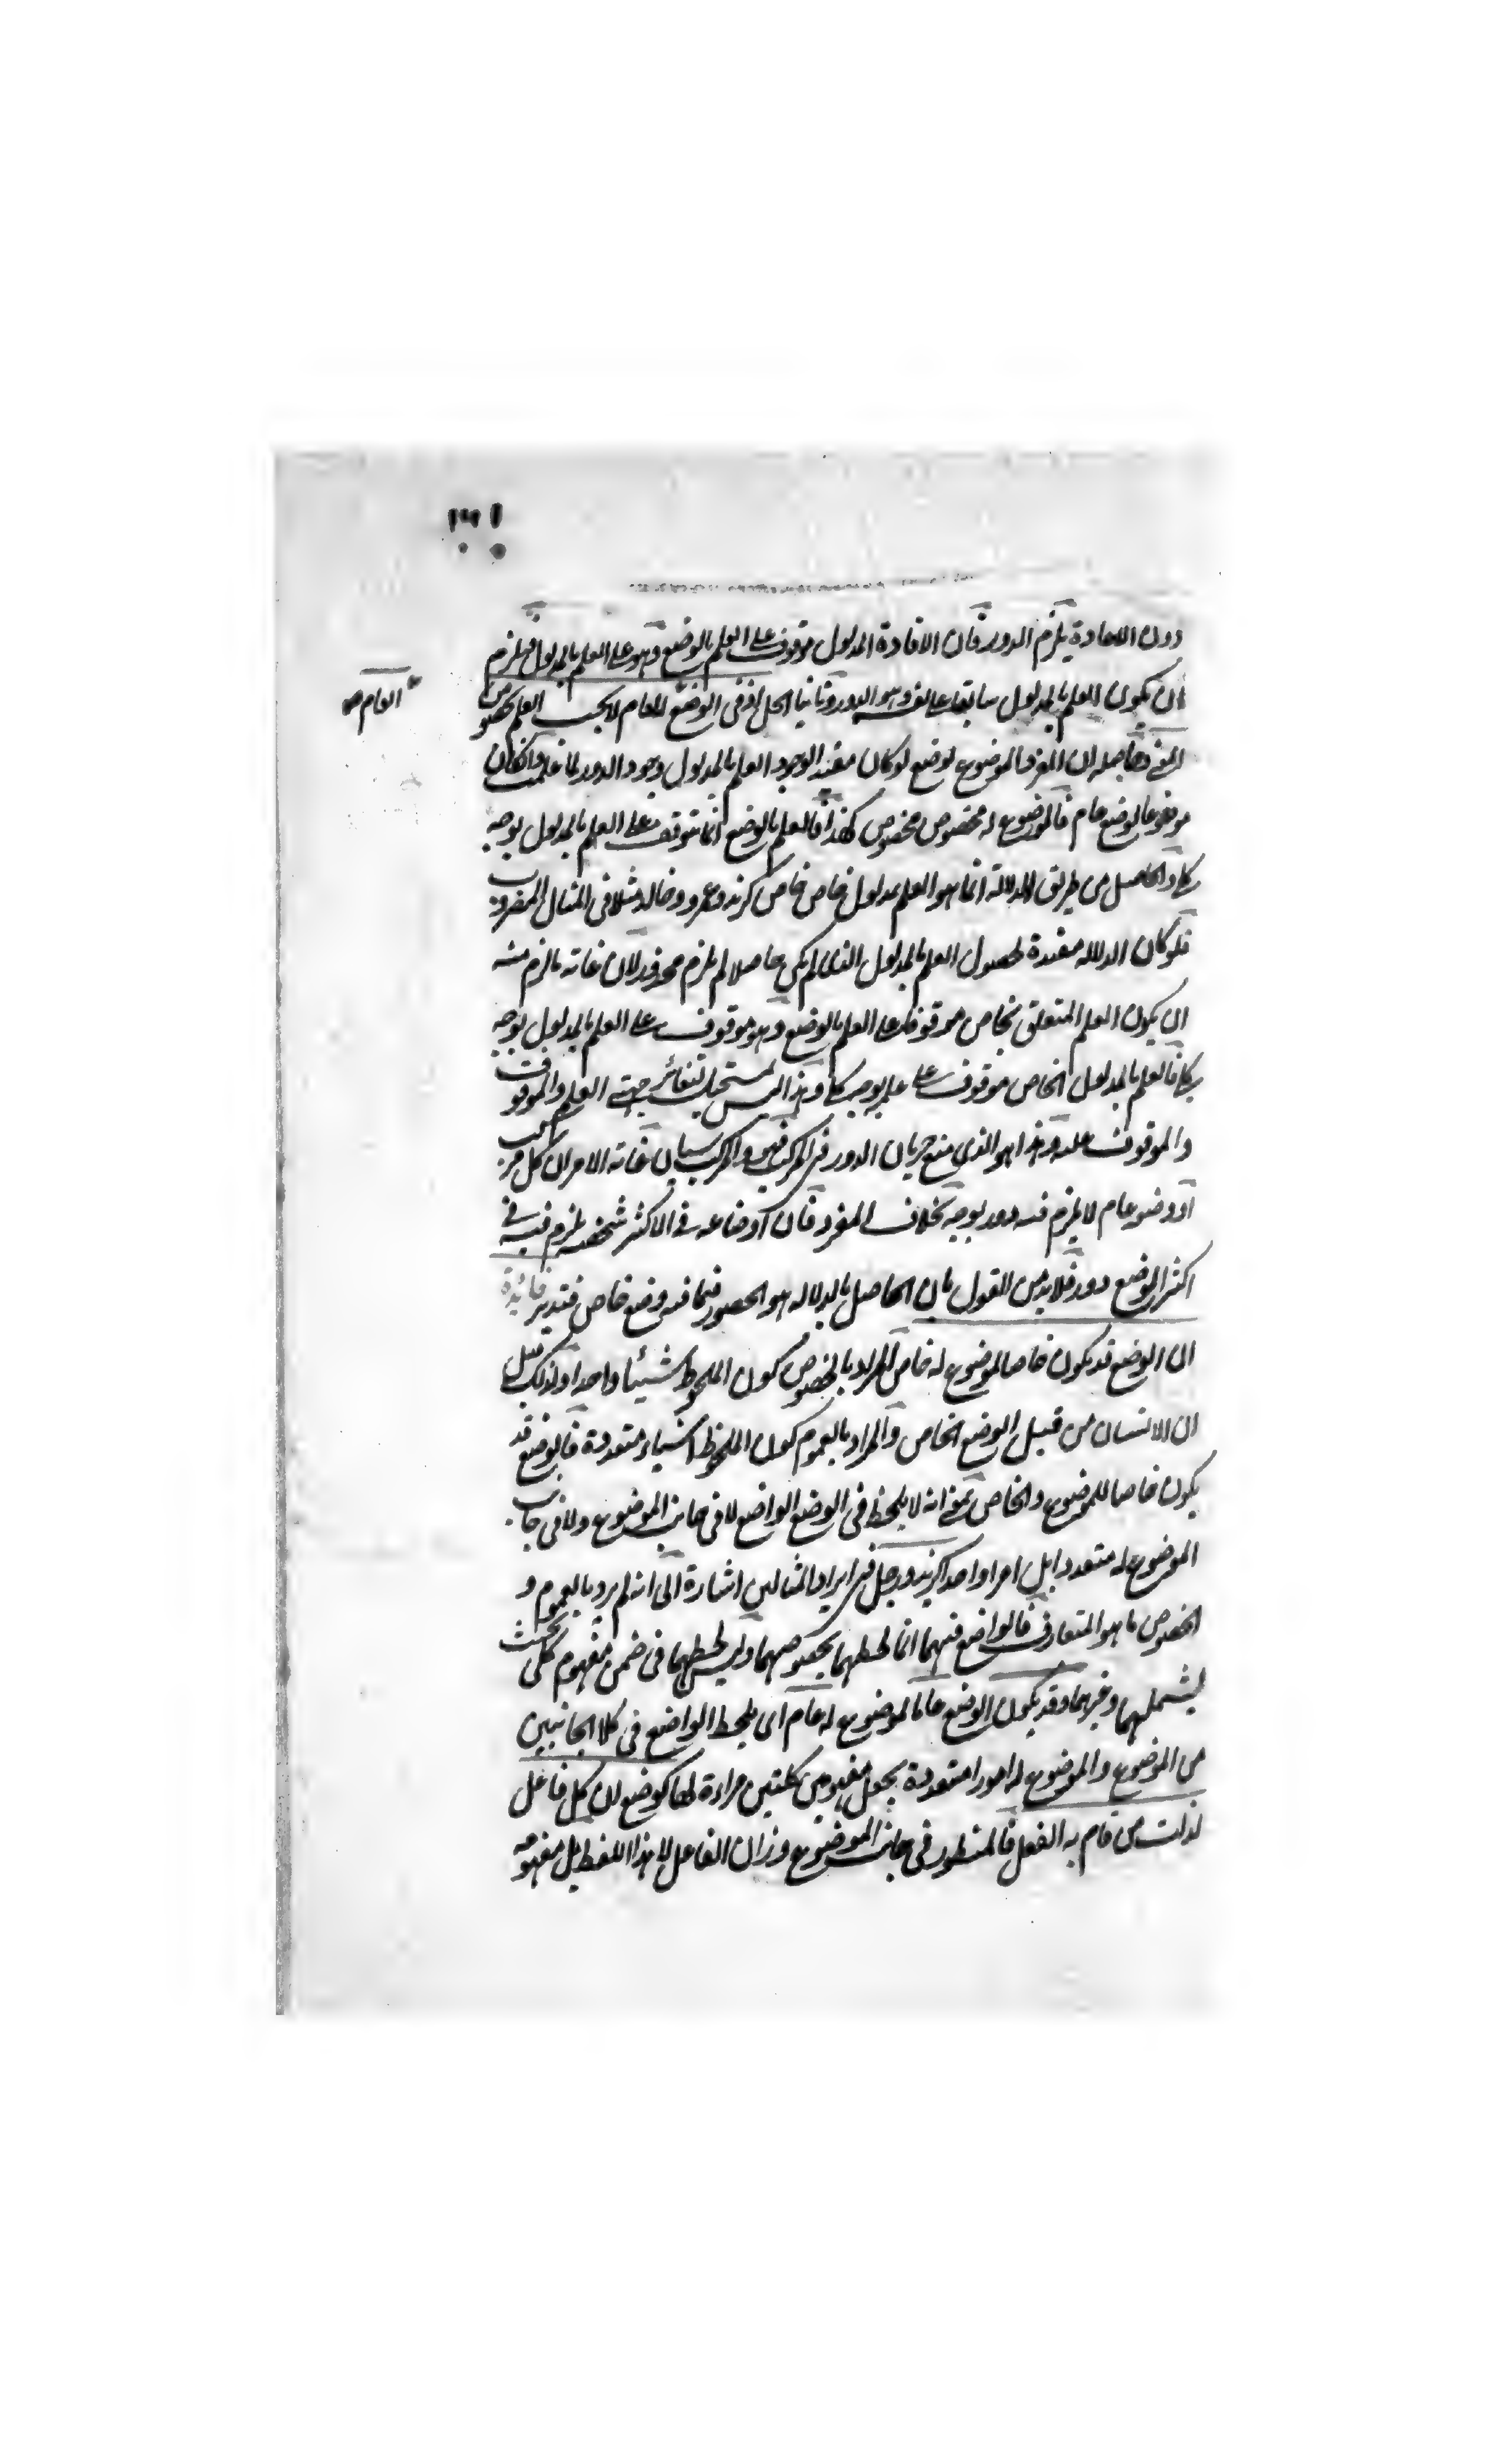 دون الافادة يلزم الدور فان الافادة المدلول موقوف على العلم بالوضع وهو على العلم بالمدلول فيلزم
ان يكون العلم بالمدلول سابقا وهو الدور وثانيا الحل اذ فى الوضع العام لا يجب العلم بخصوص
العام
المعنى وحاصله ان المفرد الموضوع لوضع لو كان مفيد الوجود العلم بالمدلول وجود الدور لما علمت واذا كان
موضوعا لوضع عام فالموضوع له مخصوص مخصوص كهذا فالعلم بالوضع انما يتوقف على العلم بالمدلول بوجه
كلى والحاصل من طريق الدلالة انما هو العلم بمدلول خاص خاص كزيد وعمرو وخالد مثلا فى المثال المضروب
فلو كان الدلالة مفيدة لحصول العلم بالمدلول الذى لم يكن حاصلا لم يلزم محذور لان غاية ما لزم منه
ان يكون العلم المتعلق بخاص موقوفا على العلم بالوضع وهو موقوف على العلم بالمدلول بوجه
كلى فالعلم بالمدلول الخاص موقوف على علم بوجه كلى وهذا ليس بمستحيل لتغائر جهتى العلم الموقوف
والموقوف عليه وهذا هو الذى منع جريان الدور فى المركب والمركب سيان غاية الامر ان كل مركب
اوضاعه عام لا يلزم فيه دور بوجه بخلاف المفرد فان اوضاعه فى الاكثر شخصية يلزم فيه فى
اكثر الوضع دور فلا بد من القول بان الحاصل بالدلالة هو الحضور فيما فيه وضع خاص فتدبر فائدة
ان الوضع قد يكون خاصا لموضوع له خاص المراد بالخصوص كون الملحوظ شيئا واحدا ولذلك قيل
ان الانسان من قبيل الوضع الخاص والمراد بالعموم كون الملحوظ اشياء متعددة فالوضع قد
يكون خاصا للموضوع والخاص بمعنى انه لا يلحظ فى الوضع الواضع لا فى جانب الموضوع ولا فى جانب
الموضوع له متعددا بل امرا واحدا كزيد ورجل فى ايراد المثالين اشارة الى انه لم يرد بالعموم و
الخصوص ما هو المتعارف فالواضع فيهما انما لحظهما بخصوصهما وليس لحظهما فى ضمن مفهوم كلى بحيث
يشملهما وغيرهما وقد يكون الوضع عاما لموضوع له عام اى يلحظ الواضع فى كلا الجانبين
من الموضوع والموضوع له امورا متعددة بجعل مفهومين كليتين مراءة لها كوضع ان كل فاعل
لذات من قام به الفعل فالمنظور فى جانب الموضوع وزان الفاعل لا هذا اللفظ بل مفهومه